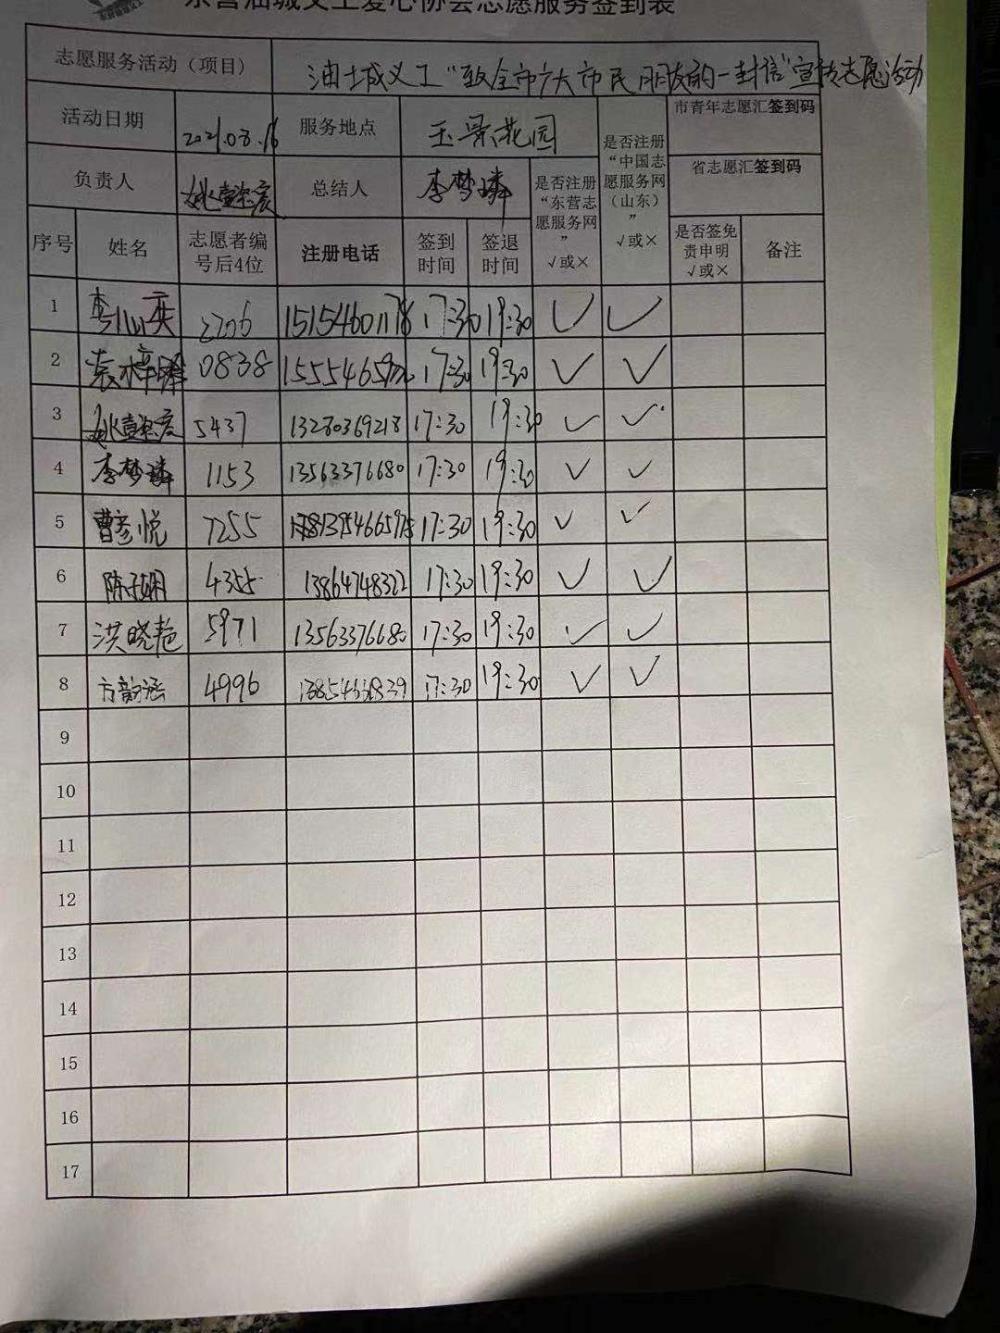 东营油城义工爱心协会志愿服务签到表
志愿服务活动（项目） 油城义工“致全市广大市民朋友的一封信”宣传志愿活动
活动日期 2021.03.16 服务地点 玉景花园 是否注册“中国志愿服务网（山东）”√或× 市青年志愿汇签到码
负责人 总结人 李梦璘 是否注册“东营志愿服务网”√或× 省志愿汇签到码
序号 姓名 志愿者编号后4位 注册电话 签到时间 签退时间 是否签免责申明√或× 备注
1 2206 15154601178 17:30 19:30 ✓ ✓
2 0838 17:30 19:30 ✓ ✓
3 5437 13280369218 17:30 19:30 ✓ ✓
4 李梦璘 1153 13563376680 17:30 19:30 ✓ ✓
5 曹彦悦 7255 17:30 19:30 ✓ ✓
6 陈子娴 4355 13864748322 17:30 19:30 ✓ ✓
7 洪晓艳 5971 13563376680 17:30 19:30 ✓ ✓
8 方韵涵 4996 17:30 19:30 ✓ ✓
9
10
11
12
13
14
15
16
17